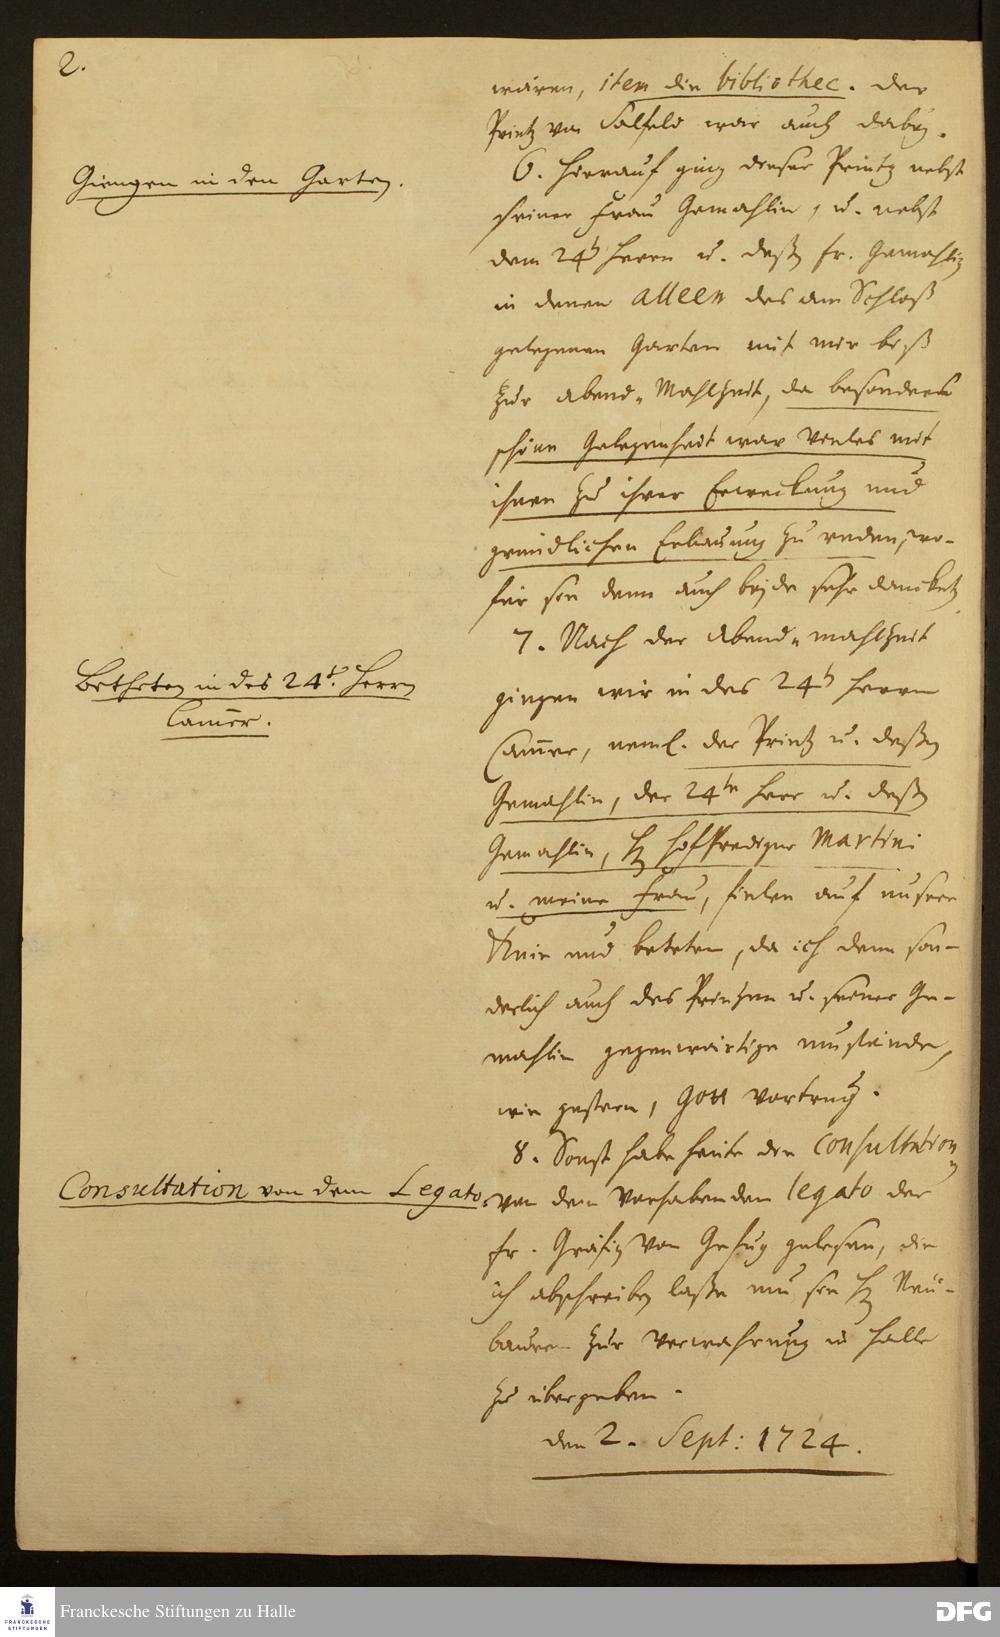 2.
wären, item die bibliothec. Der
Printz von Salfeld war auch dabey.
Giengen in den Garten.
6. Hierauf ging dieser Printz nebst
seiner Frau Gemahlin, u. nebst
dem 24t Herrn u. deßen fr. Gemahlin
in denen Alleen des am Schloß
gelegenen Garten mit mir biß
zur Abend-Mahlzeit, da besonders
schöne Gelegenheit war Vieles mit
ihnen zu ihrer Erweckung und
gründlichen Erbauung zu reden, wo-
für sie denn auch beyde sehr danckten
7. Nach der Abend-mahlzeit
Betheten in des 24t. Herrn
Camer.
gingen wir in des 24t Herrn
Camer, neml. der Printz u. deßen
Gemahlin, der 24te Herr u. deßen
Gemahlin, H. Hofprediger Martini
u. meine Frau, fielen auf unsere
Knie und beteten, da ich denn son-
derlich auch des Printzen u. seiner Ge-
mahlin gegenwärtige umstände,
wie gestern, Gott vortrug.
8. Sonst habe heute die Consultation
Consultation von dem Legato.
von dem Vorhabenden legato der
fr. Gräfin von gelesen, die
ich abschreiben laße um sie H. Neu-
bauern zur Verwahrung in Halle
zu übergeben.
den 2. Sept: 1724.
Franckesche Stiftungen zu Halle
FRANCKESCHE
STIFTUNGEN
DFG